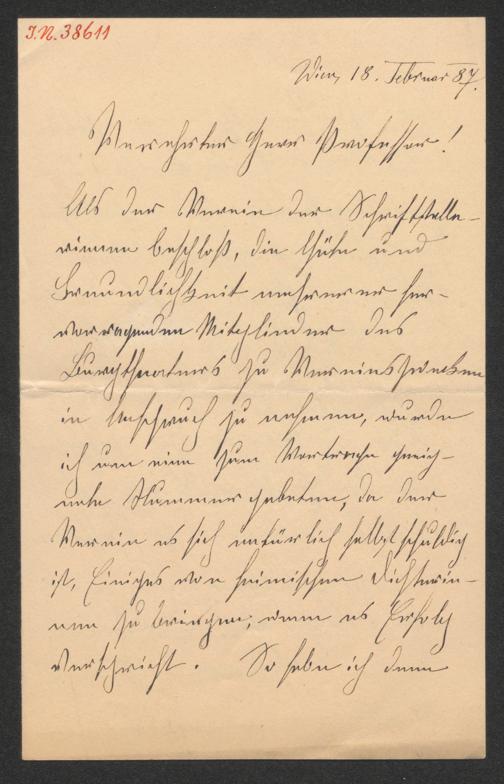 J.N. 38611
Wien, 18. Februar 87.
Verehrter Herr Professor!
Als der Verein der Schriftstelle-
rinnen beschloß, die Güte und
Freundlichkeit mehrerer her-
vorragenden Mitglieder des
Burgtheaters zu Vereinszwecken
in Anspruch zu nehmen, wurde
ich um eine zum Vortrage geeig-
nete Nummer gebeten, da der
Verein es sich natürlich selbst schuldig
ist, Einiges von heimischen Dichterin-
nen zu bringen, wenn es Erfolg
verspricht. So habe ich denn